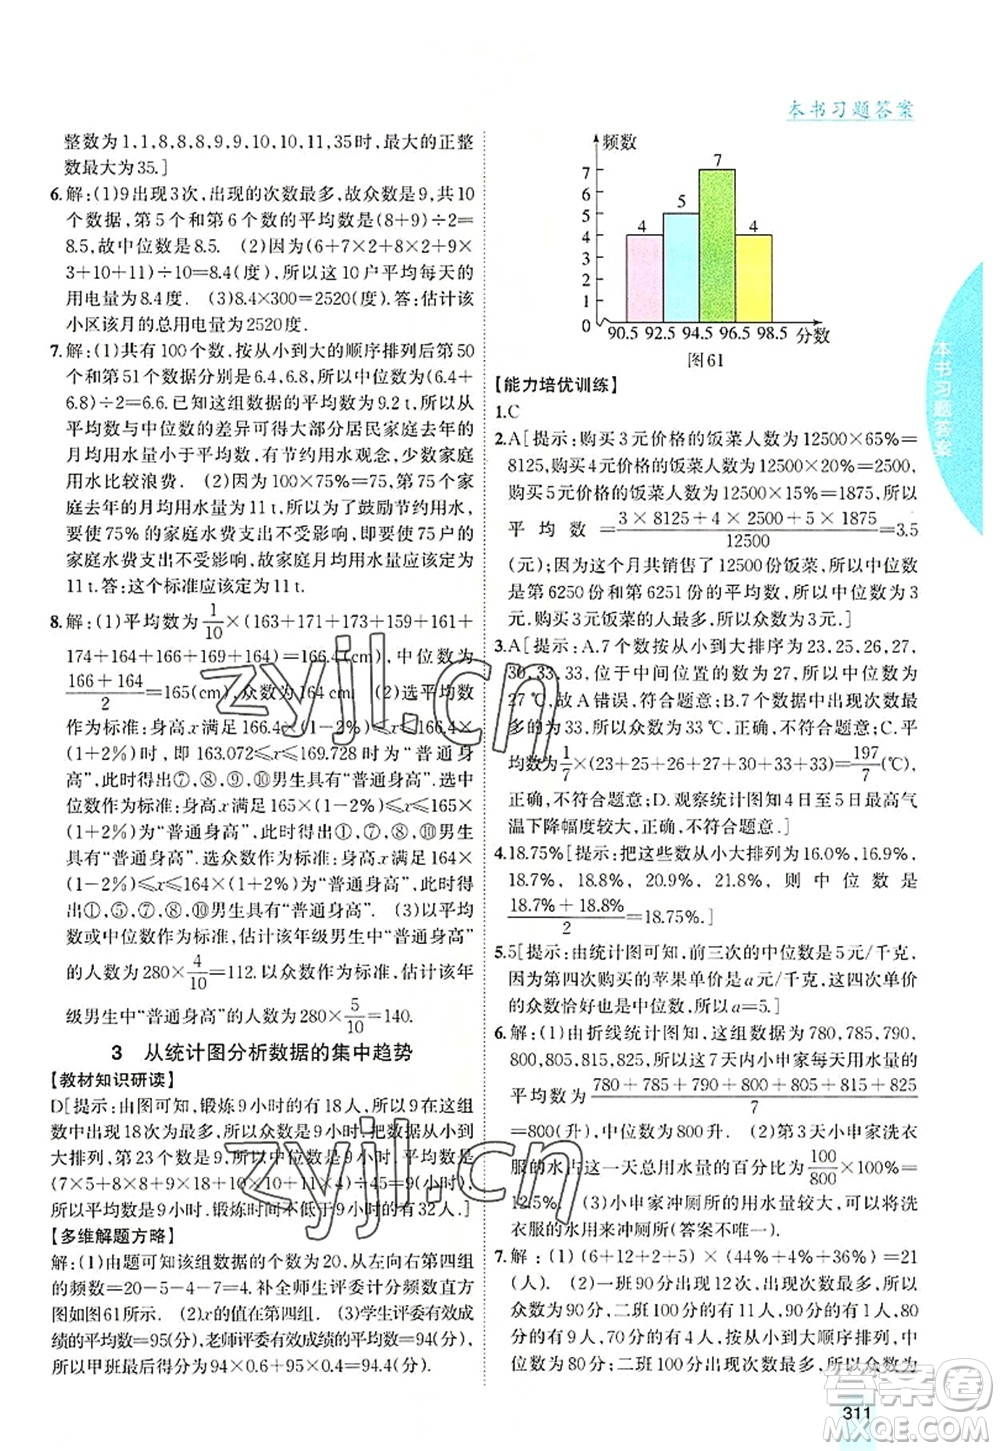 本书习题答案
整数为1,1,8,8,8,9,9,10,10,11,35时,最大的正整
数最大为35.]
6.解:(1)9出现3次,出现的次数最多,故众数是9,共10
个数据,第5个和第6个数的平均数是(8+9)÷2=
8.5,故中位数是8.5. (2)因为(6+7×2+8×2+9×
3+10+11)÷10=8.4(度),所以这10户平均每天的
用电量为8.4度. (3)8.4×300=2520(度).答:估计该
小区该月的总用电量为2520度.
7.解:(1)共有100个数,按从小到大的顺序排列后第50
个和第51个数据分别是6.4,6.8,所以中位数是(6.4+
6.8)÷2=6.6.已知这组数据的平均数为9.2 t,从平均
数与中位数的差异可得大部分居民家庭去年的
月均用水量小于平均数,有节约用水观念,少数家庭
用水比较浪费. (2)因为100×75%=75,第75个家庭
去年的月均用水量为11 t,所以为了鼓励节约用水,
要使75%的家庭水费支出不受影响,即要使75户的
家庭水费支出不受影响,故家庭月均用水量应该定为
11 t.答:这个标准应该定为11 t.
8.解:(1)平均数为1/10×(163+171+173+159+161+
174+164+166+169+164)=166.4(cm),中位数为
(166+164)/2=165(cm),众数为164 cm. (2)选平均数
作为标准:身高x满足166.4×(1-2%)≤x≤166.4×
(1+2%)时,即163.072≤x≤169.728时为“普通身
高”,此时得出⑦,⑧,⑨,⑩男生具有“普通身高”.选中
位数作为标准:身高x满足165×(1-2%)≤x≤165×
(1+2%)为“普通身高”,从而得出①,⑦,⑧,⑩男生具
有“普通身高”.选众数作为标准:身高x满足164×(1-
2%)≤x≤164×(1+2%)为“普通身高”,此时
得出①,⑤,⑦,⑧,⑩男生具有“普通身高”. (3)以平均
数或中位数作为标准,估计该年级男生中“普通身高”
的人数为280×4/10=112.以众数作为标准,估计该年
级男生中“普通身高”的人数为280×5/10=140.
3 从统计图分析数据的集中趋势
【教材知识研读】
D[提示:由图可知,锻炼9小时的有18人,所以9在这组
数中出现18次为最多,所以众数是9小时.把数据从小到
大排列,中位数是第23位数,第23位是9,所以中位数是9小时.平均数是
(7×5+8×8+9×18+10×10+11×4)÷45=9(小时),
所以平均数是9小时.锻炼时间不低于9小时的有32人.]
【多维解题方略】
解:(1)由题可知该组数据的个数为20,从左往右第四组
的频数=20-5-4-7=4.补全师生评委计分频数直方
图如图61所示. (2)x的值在第四组. (3)学生评委有效成
绩的平均数=95(分),老师评委有效成绩的平均数=94(分),
所以甲班的平均分为94×0.6+95×0.4=94.4(分).
频数
7
6
5
4
3
2
1
0
4
5
7
4
90.5 92.5 94.5 96.5 98.5 分数
图61
【能力培优训练】
1.C
2.A[提示:购买3元价格的饭菜人数为12500×65%=
8125,购买4元价格的饭菜人数为12500×20%=2500,
购买5元价格的饭菜人数为12500×15%=1875,所以
平均数=(3×8125+4×2500+5×1875)/12500=3.5
(元);因为这个月共售出12500份饭菜,所以中位数
是第6250份和第6251份的平均数是3元,所以中位数是3
元.购买价格为3元的人数最多,所以众数为3元.]
3.A[提示:A.7个数按从小到大排序为23,25,26,27,
30,33,33,位于中间位置的数为27,所以中位数为
27 ℃,故A错误,符合题意;B.7个数据中出现次数最多
的数为33,所以众数为33 ℃,正确,不符合题意;C.平
均数为1/7×(23+25+26+27+30+33+33)=197/7(℃),
所以C正确,不符合题意;D.观察统计图知4日至5日最高气
温下降幅度较大,正确,不符合题意.]
4.18.75%[提示:把这些数从小到大排列为16.0%,16.9%,
18.7%,18.8%,20.9%,21.8%,则中位数是
(18.7%+18.8%)/2=18.75%.]
5.5[提示:由统计图可知,前三次的中位数是5元/千克,
因为第四次购买的苹果单价是a元/千克,这四次单价
的众数恰好也是中位数,所以a=5.]
6.解:(1)由折线统计图知,这组数据为780,785,790,
800,805,815,825,所以这7天内小申家每天用水量的
平均数为(780+785+790+800+805+815+825)/7
=800(升),中位数为800升. (2)第3天小申家洗衣
服的水占这一天总用水量的百分比为100/800×100%=
12.5%. (3)小申家冲厕所的用水量较大,可以将洗
衣服的水用来冲厕所(答案不唯一).
7.解:(1)(6+12+2+5)×(44%+4%+36%)=21
(人). (2)一班90分的有12人,出现次数最多,所以
众数为90分,二班100分出现次数最多,所以众数为100分
;一班从大到小排列,中位数为90分,二班从大到小排列,中位数为80分
311